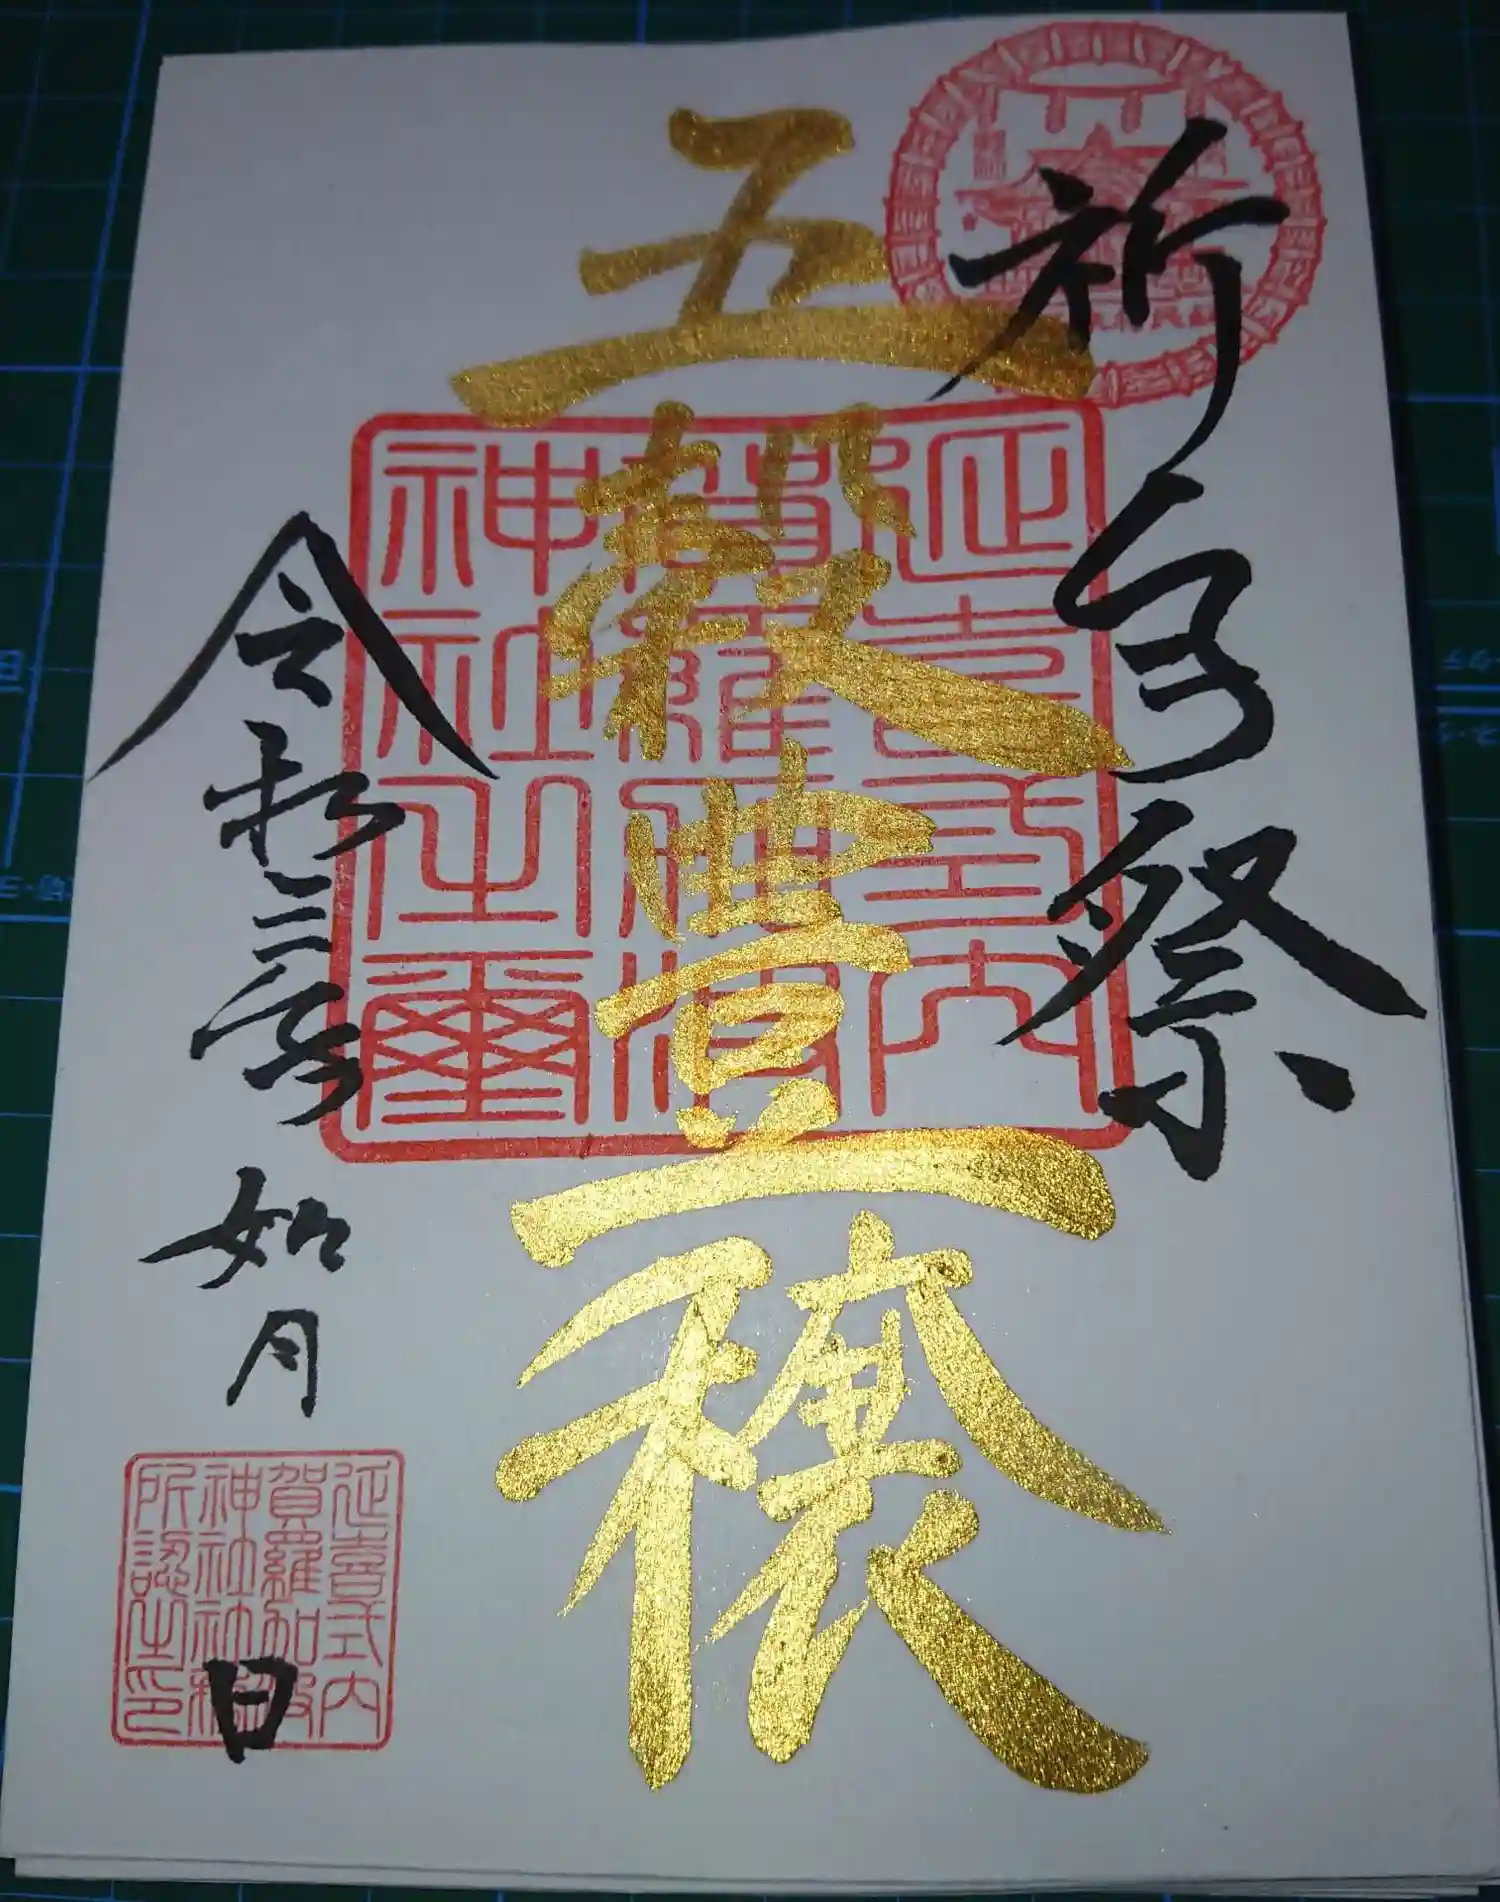 祈年祭
五穀豊穣
令和三年 如月 日
延喜式内
賀羅加波
神社之璽
延喜式内
賀羅加波
神社社務
所認之印